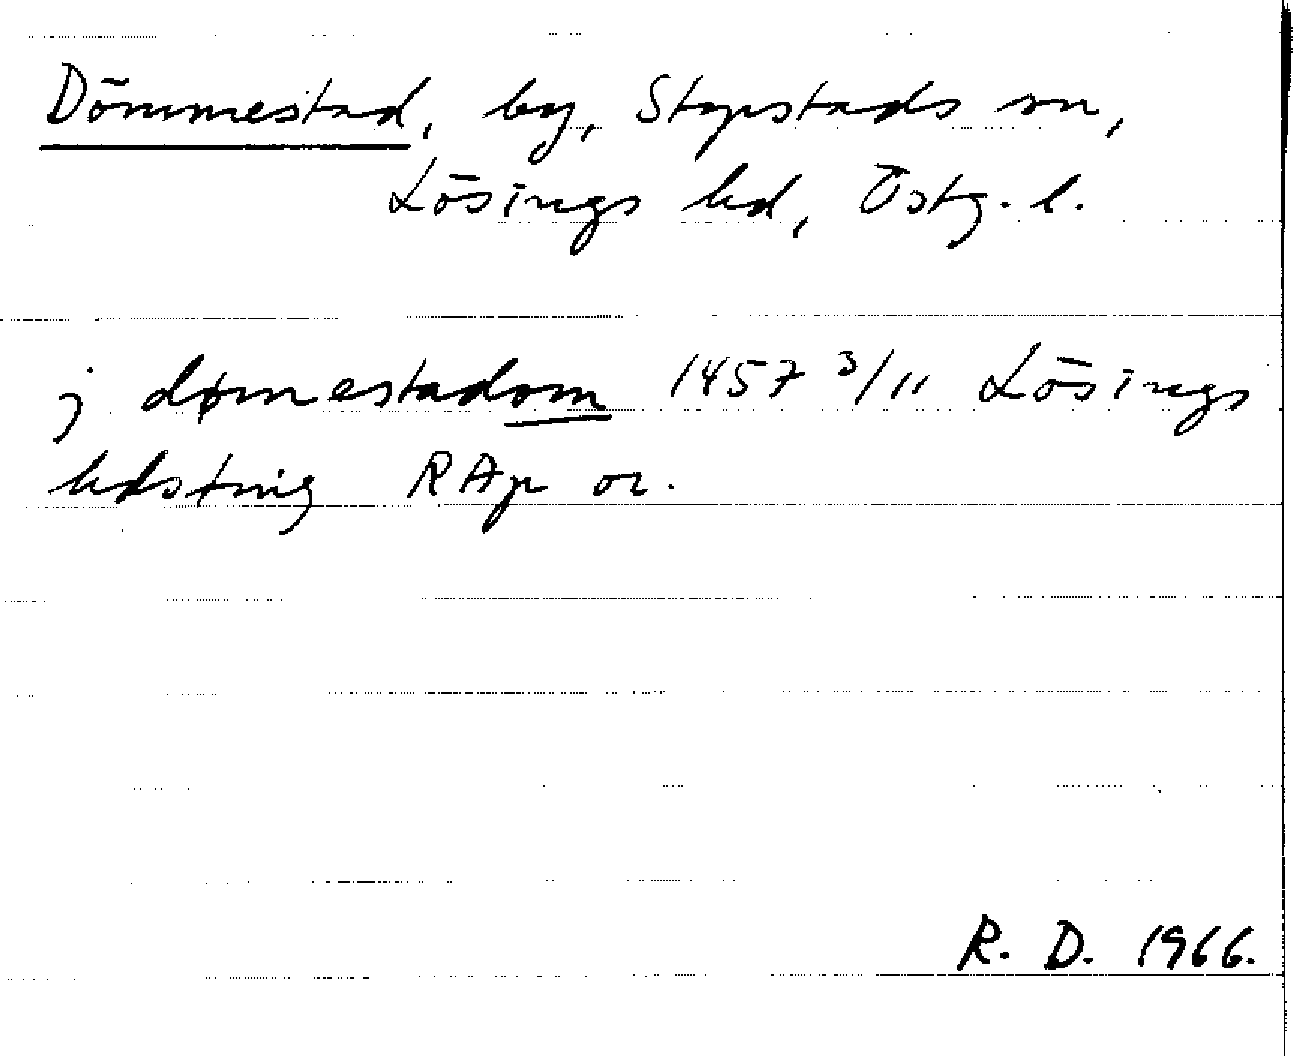 Dömmestad, by, Stegstads sn,
Lösings hd, Östg. l.
j dømestadom 1457 3/11 Lösings
hdsting RAp or.
R. D. 1966.